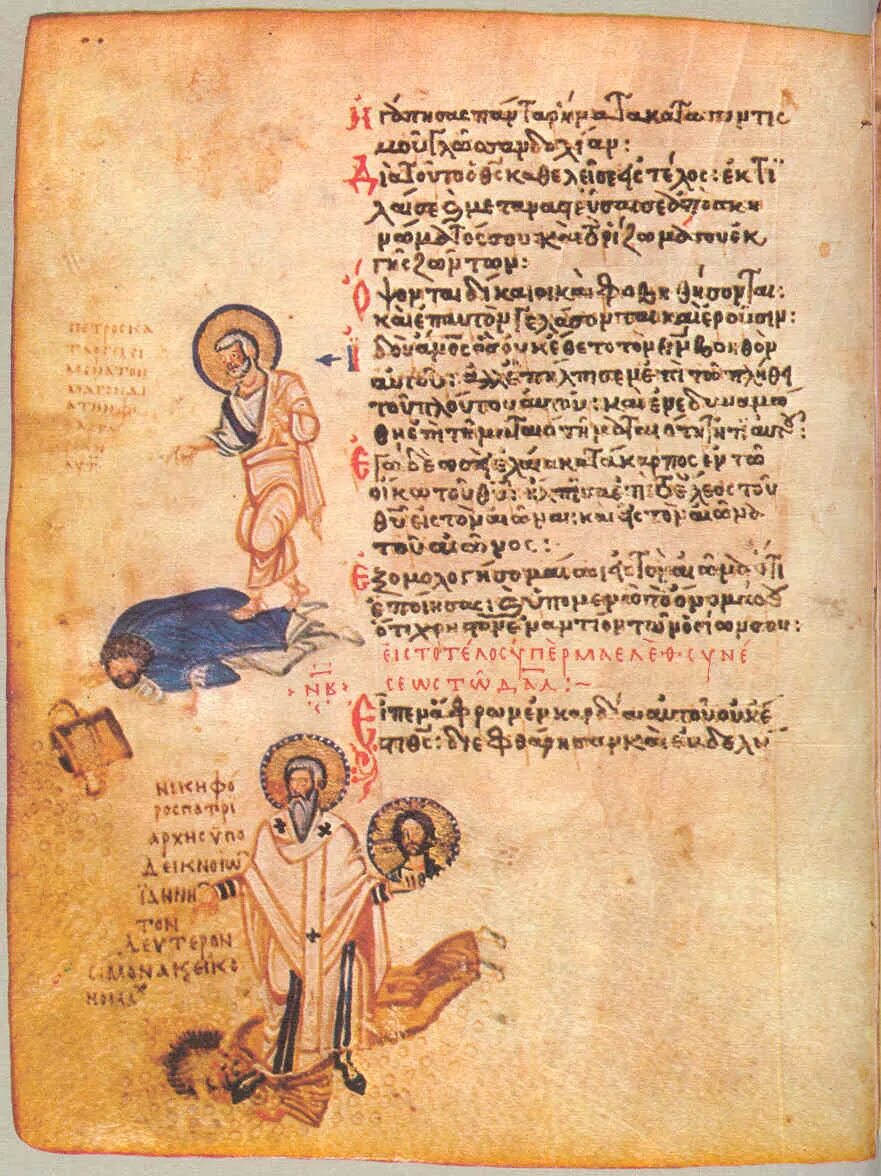 Ἠγάπησας πάντα ῥήματα καταποντισ
μοῦ γλῶσσαν δολίαν:
Διὰ τοῦτο ὁ θς καθελεῖ σε εἰς τέλος: ἐκτί
λαι σε κ μεταναστεύσαι σε ἀπὸ σκη
νώματός σου: καὶ τὸ ῥίζωμά σου ἐκ
γῆς ζώντων:
Ὄψονται δίκαιοι καὶ φοβηθήσονται:
καὶ ἐπ αὐτὸν γελάσονται καὶ ἐροῦσιν:
Ἰδοὺ ἄνος ὃς οὐκ ἔθετο τὸν θν βοηθὸν
αὐτοῦ: ἀλλ ἐπήλπισεν ἐπὶ τῶ πλήθει
τοῦ πλούτου αὐτοῦ: καὶ ἐνεδυναμώ
θη ἐπὶ τῆ ματαιότητι αὐτοῦ:
Ἐγὼ δὲ ὡσεὶ ἐλαία κατάκαρπος ἐν τῶ
οἴκω τοῦ θῦ: ἤλπισα ἐπὶ τὸ ἔλεος τοῦ
θῦ εἰς τὸν αἰῶνα: καὶ εἰς τὸν αἰῶνα
τοῦ αἰῶνος:
Ἐξομολογήσομαί σοι εἰς τὸν αἰῶνα ὅτι
ἐποίησας: κ ὑπομενῶ τὸ ὄνομά σου
ὅτι χρηστὸν ἐναντίον τῶν ὁσίων σου:
ΕΙΣ ΤΟ ΤΕΛΟΣ ΥΠΕΡ ΜΑΕΛΕΘ ΣΥΝΕ
ΣΕΩΣ ΤΩ ΔΑΔ:~
ΝΒ
Εἶπεν ἄφρων ἐν καρδία αὐτοῦ οὐκ ἔ
στι θς: διεφθάρησαν καὶ ἐβδελύ
ΠΕΤΡΟΣ ΚΑ
ΝΙΚΗΦΟ
ΡΟΣ ΠΑΤΡΙ
ΑΡΧΗΣ ΥΠΟ
ΔΕΙΚΝΟΙΩ
ΙΑΝΝΗ
ΤΟΝ
ΔΕΥΤΕΡΟΝ
ΣΙΜΟΝΑ Κ ΕΙΚΟ
ΝΟΜΑΧ